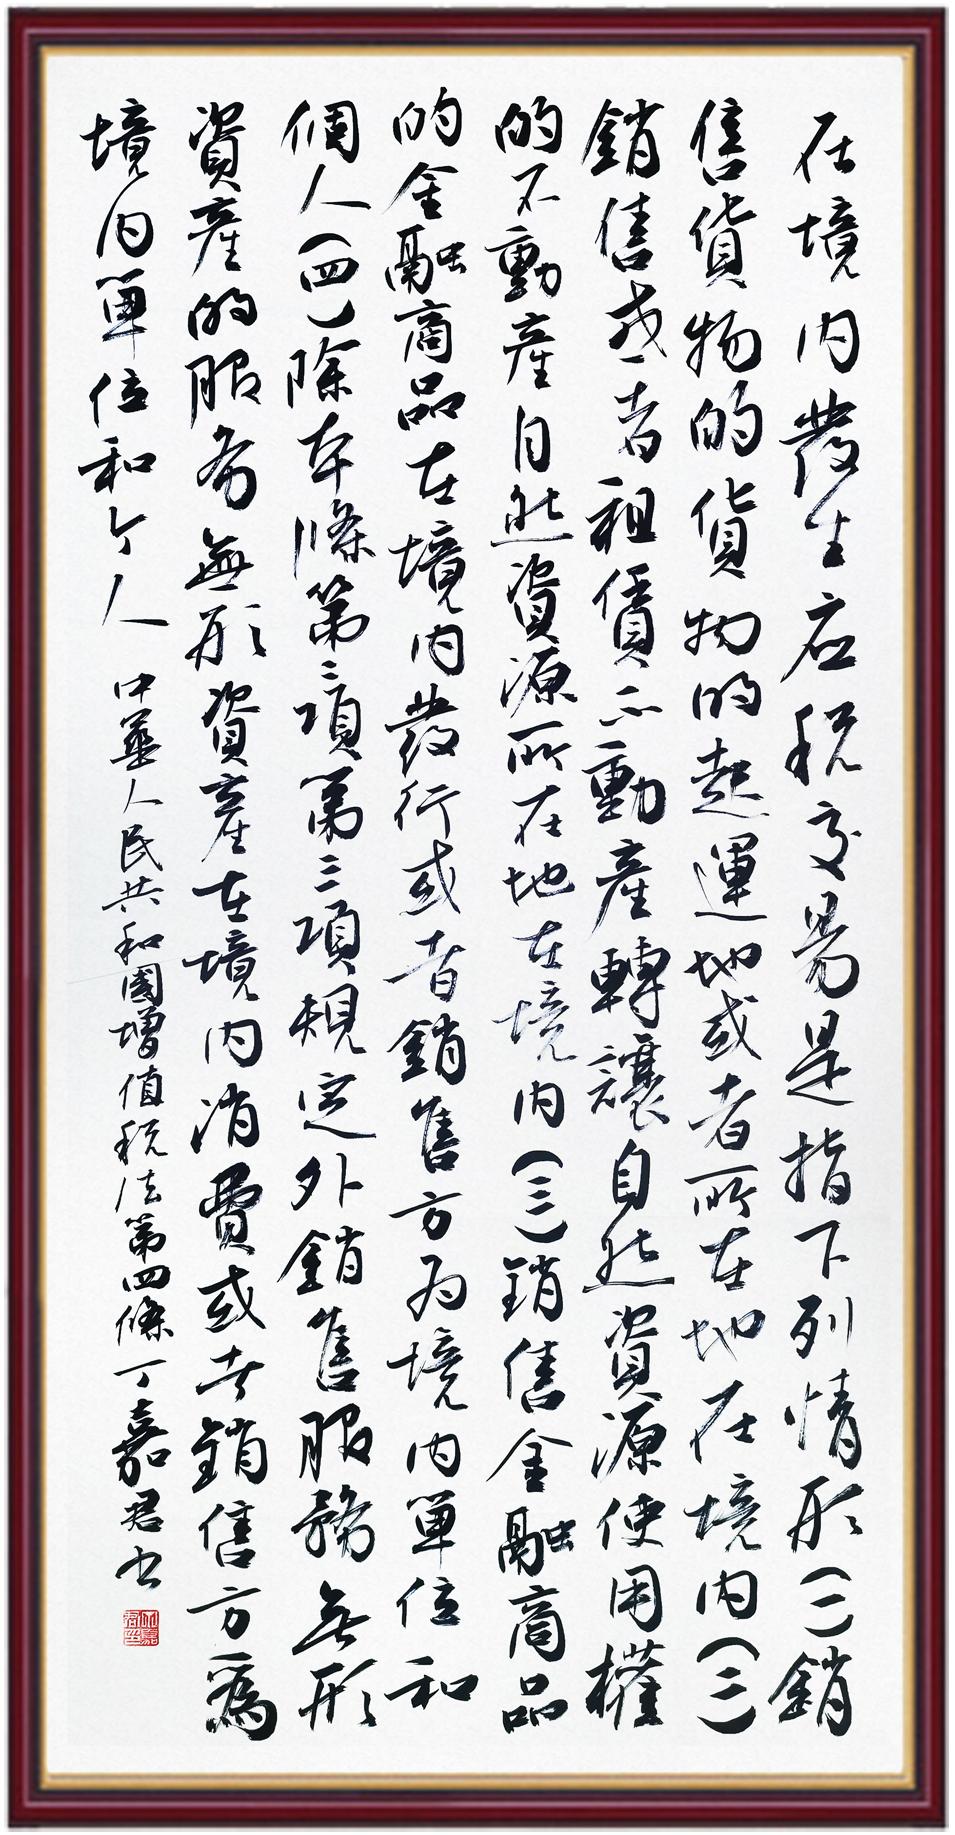 在境内發生应税交易是指下列情形(一)銷
售貨物的貨物的起運地或者所在地在境内(二)
銷售或者租賃不動產轉讓自然資源使用權
的不動產自然資源所在地在境内(三)銷售金融商品
的金融商品在境内發行或者銷售方为境内單位和
個人(四)除本條第二項第三項規定外銷售服務無形
資產的服务無形資產在境内消費或者銷售方為
境内單位和个人 中華人民共和國增值税法第四條丁嘉君书